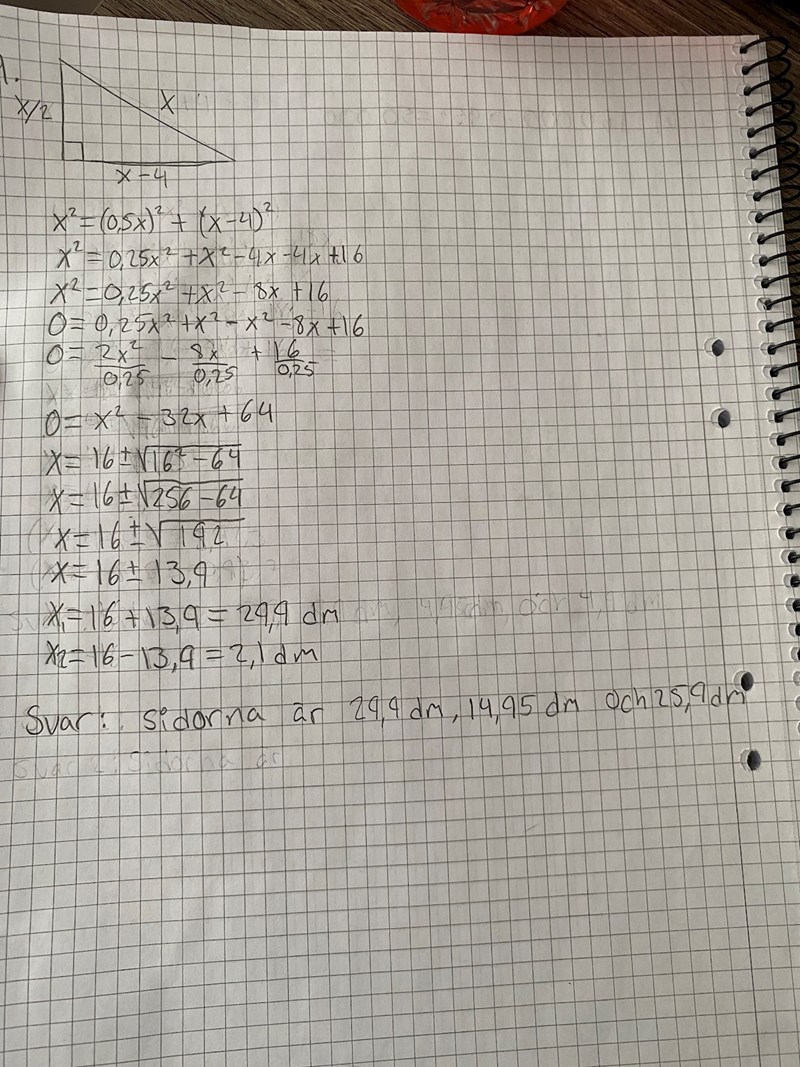 1.
x/2
x
x-4
x² = (0,5x)² + (x-4)²
x² = 0,25x² + x² - 4x - 4x + 16
x² = 0,25x² + x² - 8x + 16
0 = 0,25x² + x² - x² - 8x + 16
0 = 2x²/0,25 - 8x/0,25 + 16/0,25
0 = x² - 32x + 64
x = 16 ± √16² - 64
x = 16 ± √256 - 64
x = 16 ± √192
x = 16 ± 13,9
x₁ = 16 + 13,9 = 29,9 dm
x₂ = 16 - 13,9 = 2,1 dm
Svar: sidorna är 29,9 dm, 14,95 dm och 25,9 dm